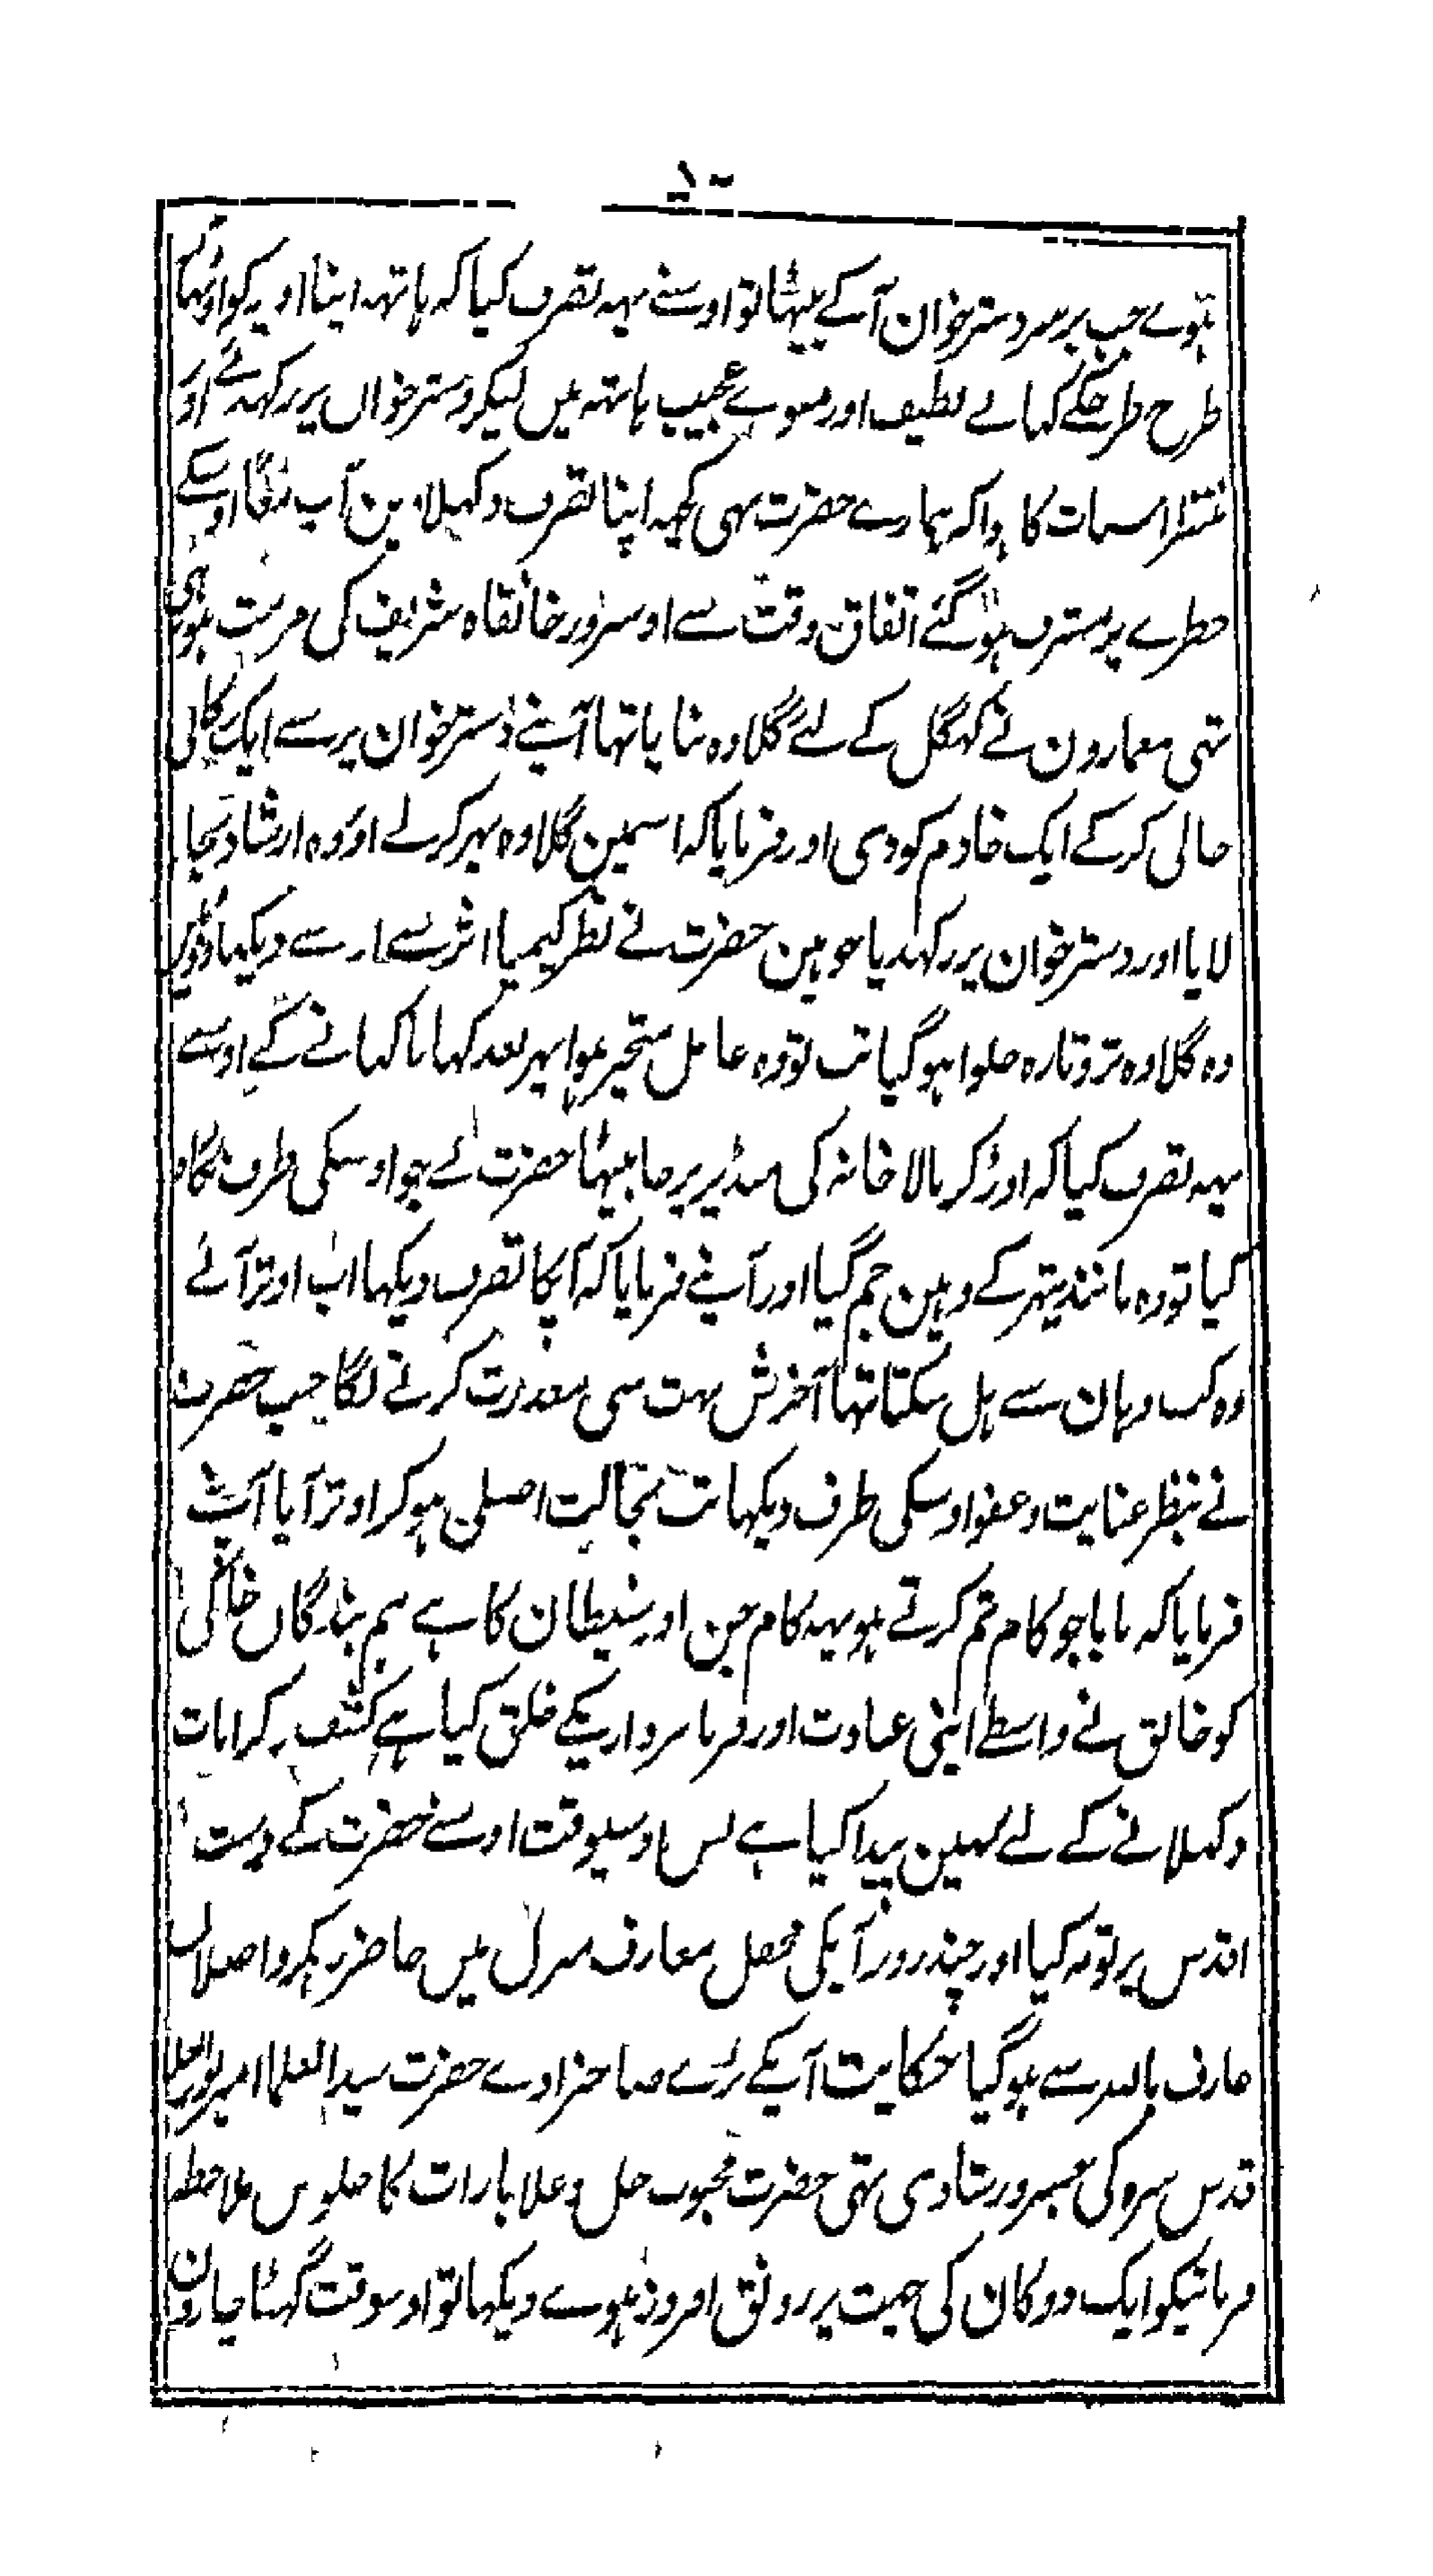 ہوے جب برسر دسترخوان آکے بیٹہا تو اوسنے یہہ تصرف کیا کہ ہاتہہ اپنا اوپر کو اوٹہا
طرح طرحکے کہانے لطیف اور میوے عجیب ہاتہہ میں لیکر دسترخواں پر رکہدئے اور
منتظر اسبات کا ہوا کہ ہمارے حضرت بہی کچہہ اپنا تصرف دکہلاوین آپ معًا اوسکے
خطرے پر مشرف ہوگئے اتفاق وقت سے اوسروز خانقاہ شریف کی مرمت ہورہی
تہی معمارون نے کہگل کے لئے گلاوہ بنایا تہا آپنے دسترخوان پر سے ایک رکابی
خالی کرکے ایک خادم کو دی اور فرمایا کہ اسمین گلاوہ بہر کر لے اور وہ ارشاد بجا
لایا اور دسترخوان پر رکہدیا جوہین حضرت نے نظر کیمیا اثر سے اوسے دیکہا فورًا
وہ گلاوہ تروتازہ حلوا ہوگیا تب تو وہ عامل متحیر ہوا پہر بعد کہانا کہانے کے اوسنے
یہہ تصرف کیا کہ اوڑکر بالا خانہ کی منڈیر پر جا بیٹہا حضرت نے جو اوسکی طرف نگاہ
کیا تو وہ مانند پتہر کے وہین جم گیا اور آپنے فرمایا کہ آپکا تصرف دیکہا اب اوتر آئے
وہ کب وہان سے ہل سکتا تہا آخرش بہت سی معذرت کرنے لگا جب حضرت
نے بنظر عنایت وعفو اوسکی طرف دیکہا تب بحالت اصلی ہوکر اوتر آیا آپ
فرمایا کہ بابا جو کام تم کرتے ہو یہہ کام جن اور شیطان کا ہے ہم بندگاں خاکی
کو خالق نے واسطے اپنی عبادت اور فرمانبرداریکے خلق کیا ہے کشف و کرامات
دکہلانے کے لئے نہین پیدا کیا ہے بس اوسیوقت اوسنے حضرت کے دست
اقدس پر توبہ کیا اور چند روز آپکی محفل معارف منزل میں حاضر رہکر واصلان
عارف باللہ سے ہوگیا حکایت آپکے بڑے صاحبزادے حضرت سید العلما امیر نورالعلا
قدس سرہ کی جسروز شادی تہی حضرت محبوب جل وعلا بارات کا جلوس ملاحظہ
فرمانیکو ایک دوکان کی چہت پر رونق افروز ہوے دیکہا تو اوسوقت گہٹا چارون